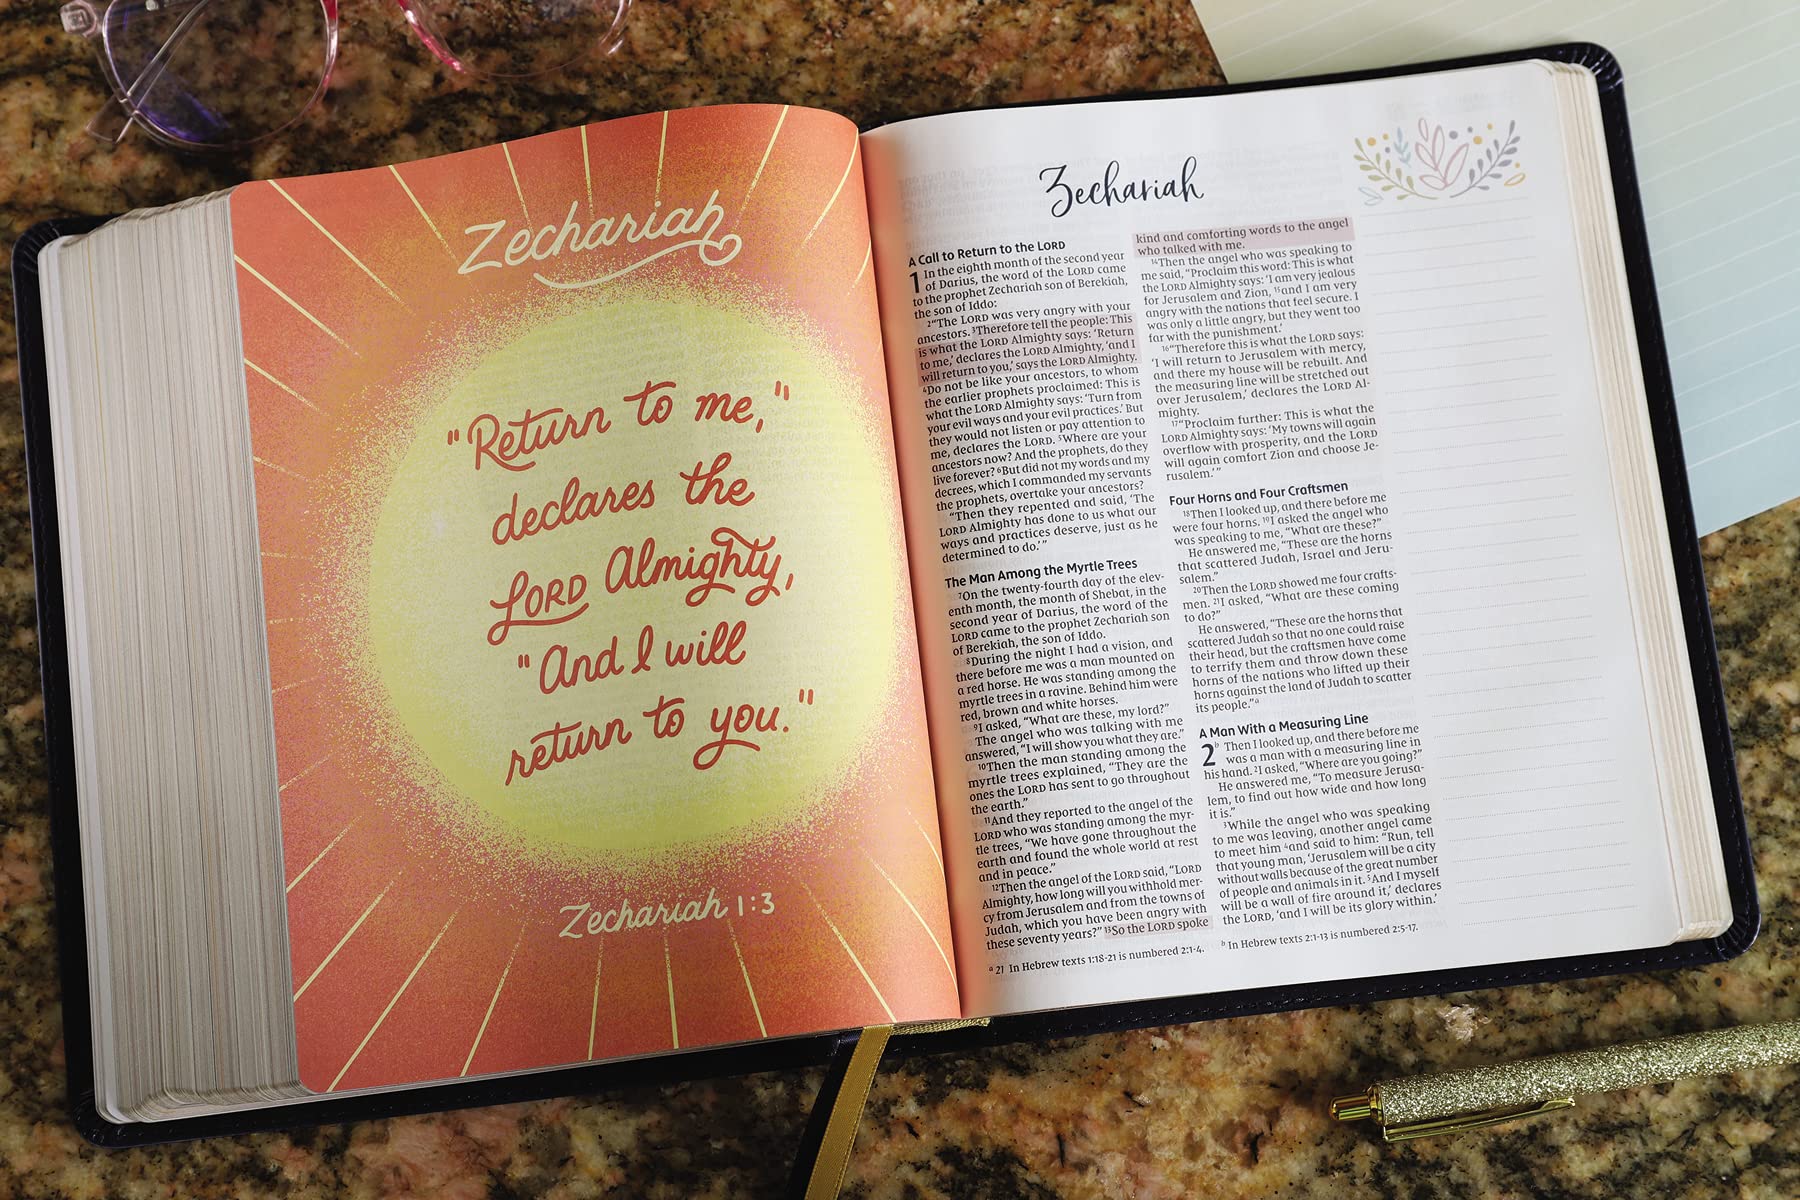 Zechariah
"Return to me,"
declares the
LORD Almighty,
"And I will
return to you."
Zechariah 1:3
Zechariah
A Call to Return to the LORD
1 In the eighth month of the second year
of Darius, the word of the LORD came
to the prophet Zechariah son of Berekiah,
the son of Iddo:
2“The LORD was very angry with your
ancestors. 3Therefore tell the people: This
is what the LORD Almighty says: ‘Return
to me,’ declares the LORD Almighty, ‘and I
will return to you,’ says the LORD Almighty.
4Do not be like your ancestors, to whom
the earlier prophets proclaimed: This is
what the LORD Almighty says: ‘Turn from
your evil ways and your evil practices.’ But
they would not listen or pay attention to
me, declares the LORD. 5Where are your
ancestors now? And the prophets, do they
live forever? 6But did not my words and my
decrees, which I commanded my servants
the prophets, overtake your ancestors?
“Then they repented and said, ‘The
LORD Almighty has done to us what our
ways and practices deserve, just as he
determined to do.’”
The Man Among the Myrtle Trees
7On the twenty-fourth day of the elev-
enth month, the month of Shebat, in the
second year of Darius, the word of the
LORD came to the prophet Zechariah son
of Berekiah, the son of Iddo.
8During the night I had a vision, and
there before me was a man mounted on
a red horse. He was standing among the
myrtle trees in a ravine. Behind him were
red, brown and white horses.
9I asked, “What are these, my lord?”
The angel who was talking with me
answered, “I will show you what they are.”
10Then the man standing among the
myrtle trees explained, “They are the
ones the LORD has sent to go throughout
the earth.”
11And they reported to the angel of the
LORD who was standing among the myr-
tle trees, “We have gone throughout the
earth and found the whole world at rest
and in peace.”
12Then the angel of the LORD said, “LORD
Almighty, how long will you withhold mer-
cy from Jerusalem and from the towns of
Judah, which you have been angry with
these seventy years?” 13So the LORD spoke
kind and comforting words to the angel
who talked with me.
14Then the angel who was speaking to
me said, “Proclaim this word: This is what
the LORD Almighty says: ‘I am very jealous
for Jerusalem and Zion, 15and I am very
angry with the nations that feel secure. I
was only a little angry, but they went too
far with the punishment.’
16“Therefore this is what the LORD says:
‘I will return to Jerusalem with mercy,
and there my house will be rebuilt. And
the measuring line will be stretched out
over Jerusalem,’ declares the LORD Al-
mighty.
17“Proclaim further: This is what the
LORD Almighty says: ‘My towns will again
overflow with prosperity, and the LORD
will again comfort Zion and choose Je-
rusalem.’”
Four Horns and Four Craftsmen
18Then I looked up, and there before me
were four horns. 19I asked the angel who
was speaking to me, “What are these?”
He answered me, “These are the horns
that scattered Judah, Israel and Jeru-
salem.”
20Then the LORD showed me four crafts-
men. 21I asked, “What are these coming
to do?”
He answered, “These are the horns that
scattered Judah so that no one could raise
their head, but the craftsmen have come
to terrify them and throw down these
horns of the nations who lifted up their
horns against the land of Judah to scatter
its people.”a
A Man With a Measuring Line
2b Then I looked up, and there before me
was a man with a measuring line in
his hand. 2I asked, “Where are you going?”
He answered me, “To measure Jerusa-
lem, to find out how wide and how long
it is.”
3While the angel who was speaking
to me was leaving, another angel came
to meet him 4and said to him: “Run, tell
that young man, ‘Jerusalem will be a city
without walls because of the great number
of people and animals in it. 5And I myself
will be a wall of fire around it,’ declares
the LORD, ‘and I will be its glory within.’
a 21 In Hebrew texts 1:18-21 is numbered 2:1-4. b In Hebrew texts 2:1-13 is numbered 2:5-17.